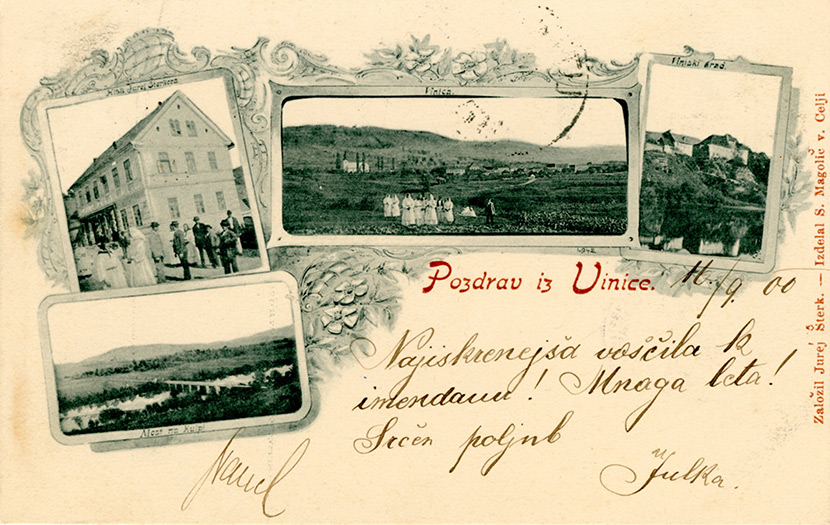 Hiša Jurej Šterkova
Vinica.
Viniski Grad.
Most na Kulpi
Pozdrav iz Vinice.
16./9. 00
Najiskrenejša voščila k
imendanu! Mnaga leta!
Srčen poljub
Julka.
Založil Jurej Šterk. — Izdelal S. Magolič v. Celji